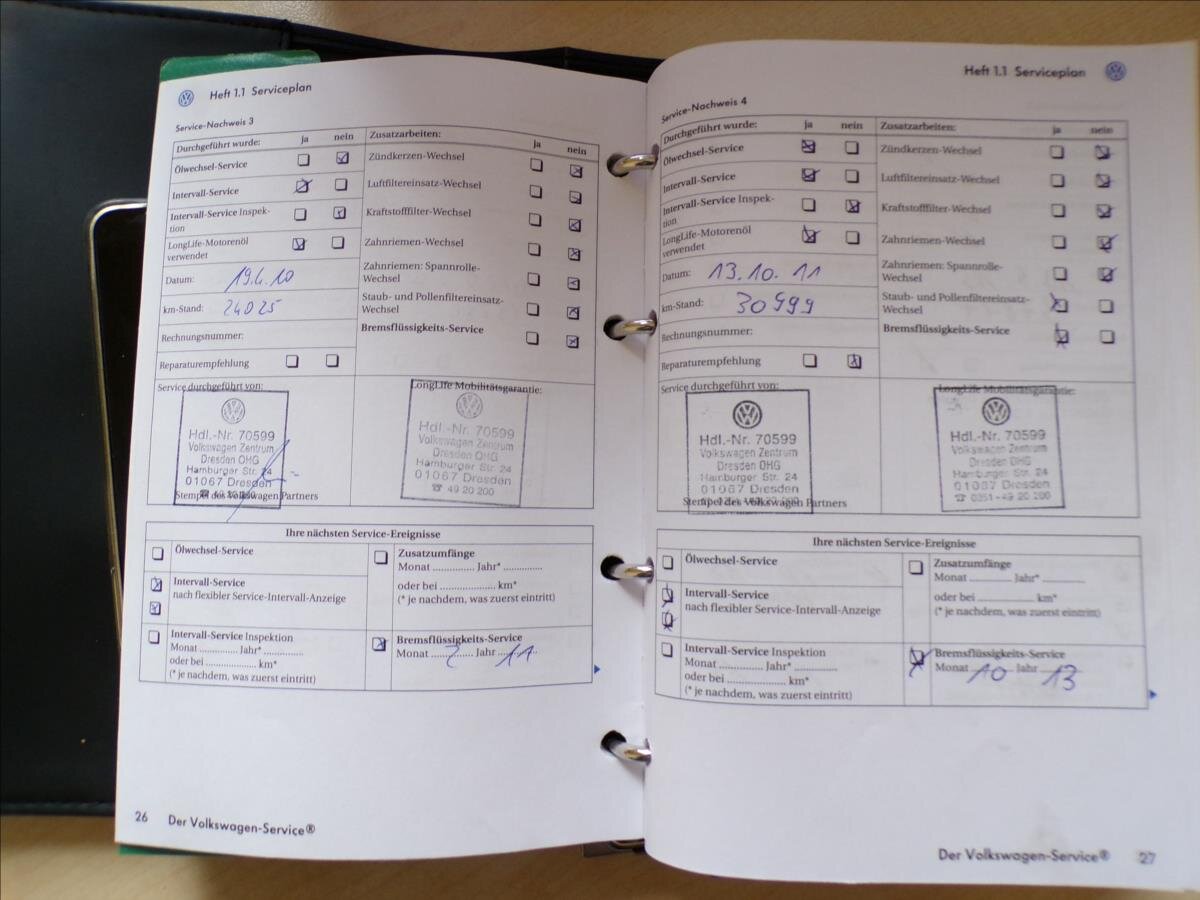 Heft 1.1 Serviceplan
Service-Nachweis 3
Durchgeführt wurde: ja nein
Ölwechsel-Service
Intervall-Service
Intervall-Service Inspek-
tion
LongLife-Motorenöl
verwendet
Datum: 19.4.10
km-Stand: 24025
Rechnungsnummer:
Reparaturempfehlung
Zusatzarbeiten: ja nein
Zündkerzen-Wechsel
Luftfiltereinsatz-Wechsel
Kraftstofffilter-Wechsel
Zahnriemen-Wechsel
Zahnriemen: Spannrolle-
Wechsel
Staub- und Pollenfiltereinsatz-
Wechsel
Bremsflüssigkeits-Service
Service durchgeführt von:
Hdl.-Nr. 70599
Volkswagen Zentrum
Dresden OHG
Hamburger Str. 24
01067 Dresden
☎ 49 20 200
Stempel des Volkswagen Partners
LongLife Mobilitätsgarantie:
Hdl.-Nr. 70599
Volkswagen Zentrum
Dresden OHG
Hamburger Str. 24
01067 Dresden
☎ 49 20 200
Ihre nächsten Service-Ereignisse
Ölwechsel-Service
Intervall-Service
nach flexibler Service-Intervall-Anzeige
Intervall-Service Inspektion
Monat .............. Jahr* .............
oder bei ........................ km*
(* je nachdem, was zuerst eintritt)
Zusatzumfänge
Monat .............. Jahr* .............
oder bei ........................ km*
(* je nachdem, was zuerst eintritt)
Bremsflüssigkeits-Service
Monat 2 Jahr 11
26 Der Volkswagen-Service®
Heft 1.1 Serviceplan
Service-Nachweis 4
Durchgeführt wurde: ja nein
Ölwechsel-Service
Intervall-Service
Intervall-Service Inspek-
tion
LongLife-Motorenöl
verwendet
Datum: 13.10.11
km-Stand: 30999
Rechnungsnummer:
Reparaturempfehlung
Zusatzarbeiten: ja nein
Zündkerzen-Wechsel
Luftfiltereinsatz-Wechsel
Kraftstofffilter-Wechsel
Zahnriemen-Wechsel
Zahnriemen: Spannrolle-
Wechsel
Staub- und Pollenfiltereinsatz-
Wechsel
Bremsflüssigkeits-Service
Service durchgeführt von:
Hdl.-Nr. 70599
Volkswagen Zentrum
Dresden OHG
Hamburger Str. 24
01067 Dresden
Stempel des Volkswagen Partners
LongLife Mobilitätsgarantie:
Hdl.-Nr. 70599
Volkswagen Zentrum
Dresden OHG
Hamburger Str. 24
01067 Dresden
☎ 0351 - 49 20 200
Ihre nächsten Service-Ereignisse
Ölwechsel-Service
Intervall-Service
nach flexibler Service-Intervall-Anzeige
Intervall-Service Inspektion
Monat .............. Jahr* .............
oder bei ........................ km*
(* je nachdem, was zuerst eintritt)
Zusatzumfänge
Monat .............. Jahr* .............
oder bei ........................ km*
(* je nachdem, was zuerst eintritt)
Bremsflüssigkeits-Service
Monat 10 Jahr 13
Der Volkswagen-Service® 27